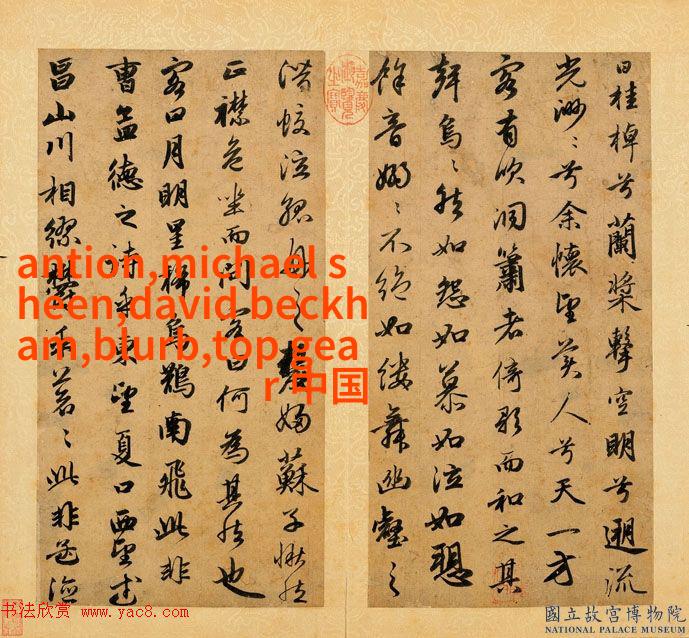 曰桂棹兮蘭槳擊空明兮遡流
光渺〻兮余懷望美人兮天一方
客有吹洞簫者倚歌而和之其
聲烏〻然如怨如慕如泣如愬
餘音嫋〻不絶如縷舞幽壑之
嘉慶御覽之寶
潛蛟泣孤舟之嫠婦蘇子愀然
正襟危坐而問客曰何為其然也
客曰月明星稀烏鵲南飛此非
曹孟德之詩乎東望夏口西望武
昌山川相繆鬱乎蒼〻此非孟德
antion,michael s
heen,david beckh
am,blurb,top gea
r 中国
书法欣赏 www.yac8.com
國立故宮博物院
NATIONAL PALACE MUSEUM